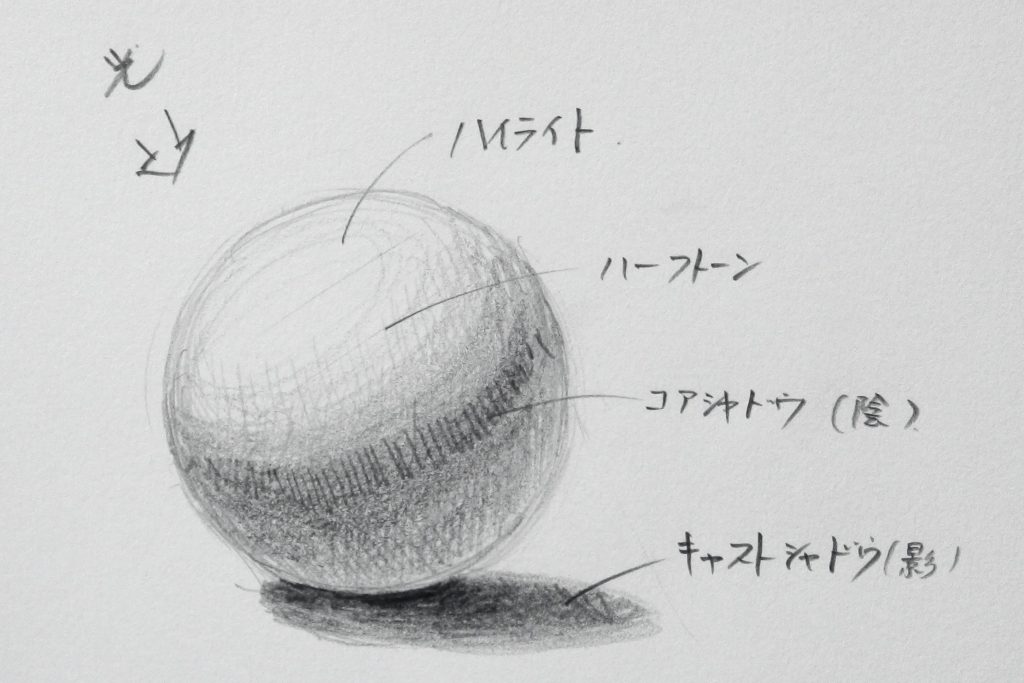 光
ハイライト
ハーフトーン
コアシャドウ（陰）
キャストシャドウ（影）